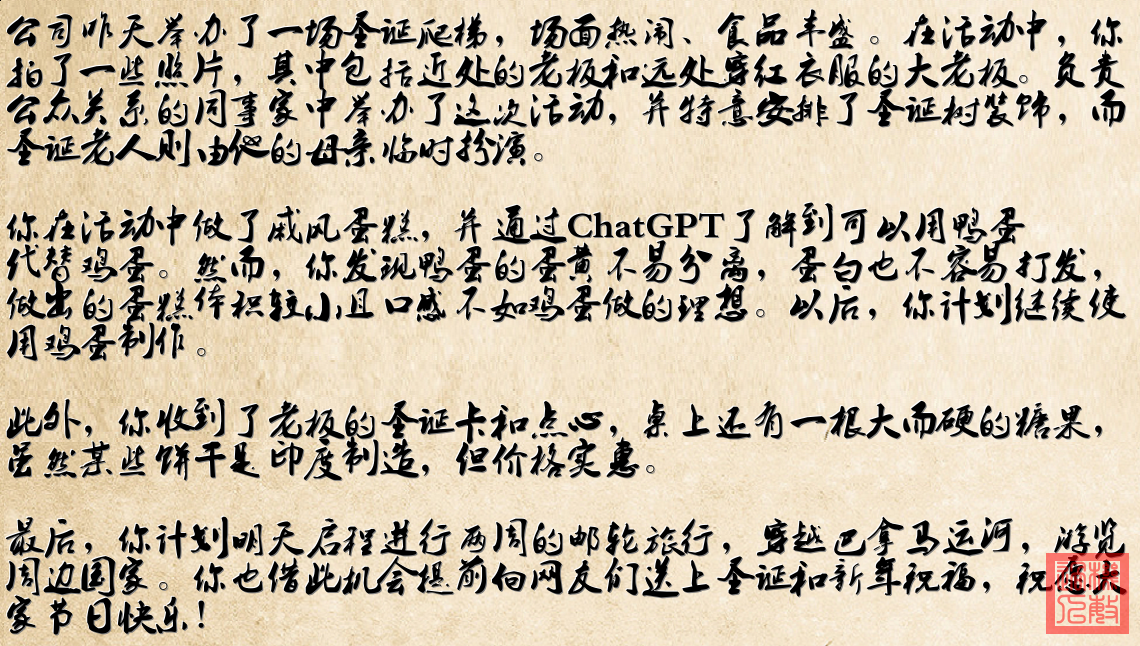 公司昨天举办了一场圣诞爬梯，场面热闹、食品丰盛。在活动中，你
拍了一些照片，其中包括近处的老板和远处穿红衣服的大老板。负责
公众关系的同事家中举办了这次活动，并特意安排了圣诞树装饰，而
圣诞老人则由他的母亲临时扮演。
你在活动中做了戚风蛋糕，并通过ChatGPT了解到可以用鸭蛋
代替鸡蛋。然而，你发现鸭蛋的蛋黄不易分离，蛋白也不容易打发，
做出的蛋糕体积较小且口感不如鸡蛋做的理想。以后，你计划继续使
用鸡蛋制作。
此外，你收到了老板的圣诞卡和点心，桌上还有一根大而硬的糖果，
虽然某些饼干是印度制造，但价格实惠。
最后，你计划明天启程进行两周的邮轮旅行，穿越巴拿马运河，游览
周边国家。你也借此机会提前向网友们送上圣诞和新年祝福，祝愿大
家节日快乐！